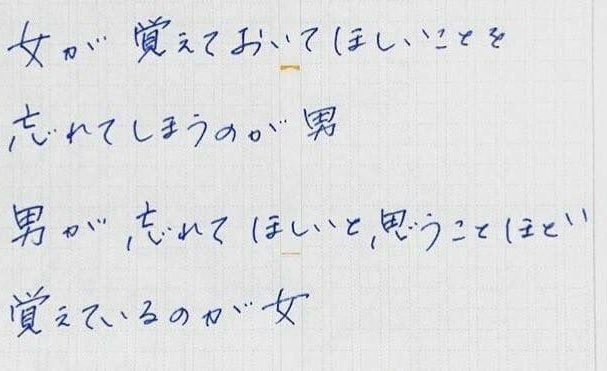 女が覚えておいてほしいことを
忘れてしまうのが男
男が忘れてほしいと思うことほど
覚えているのが女